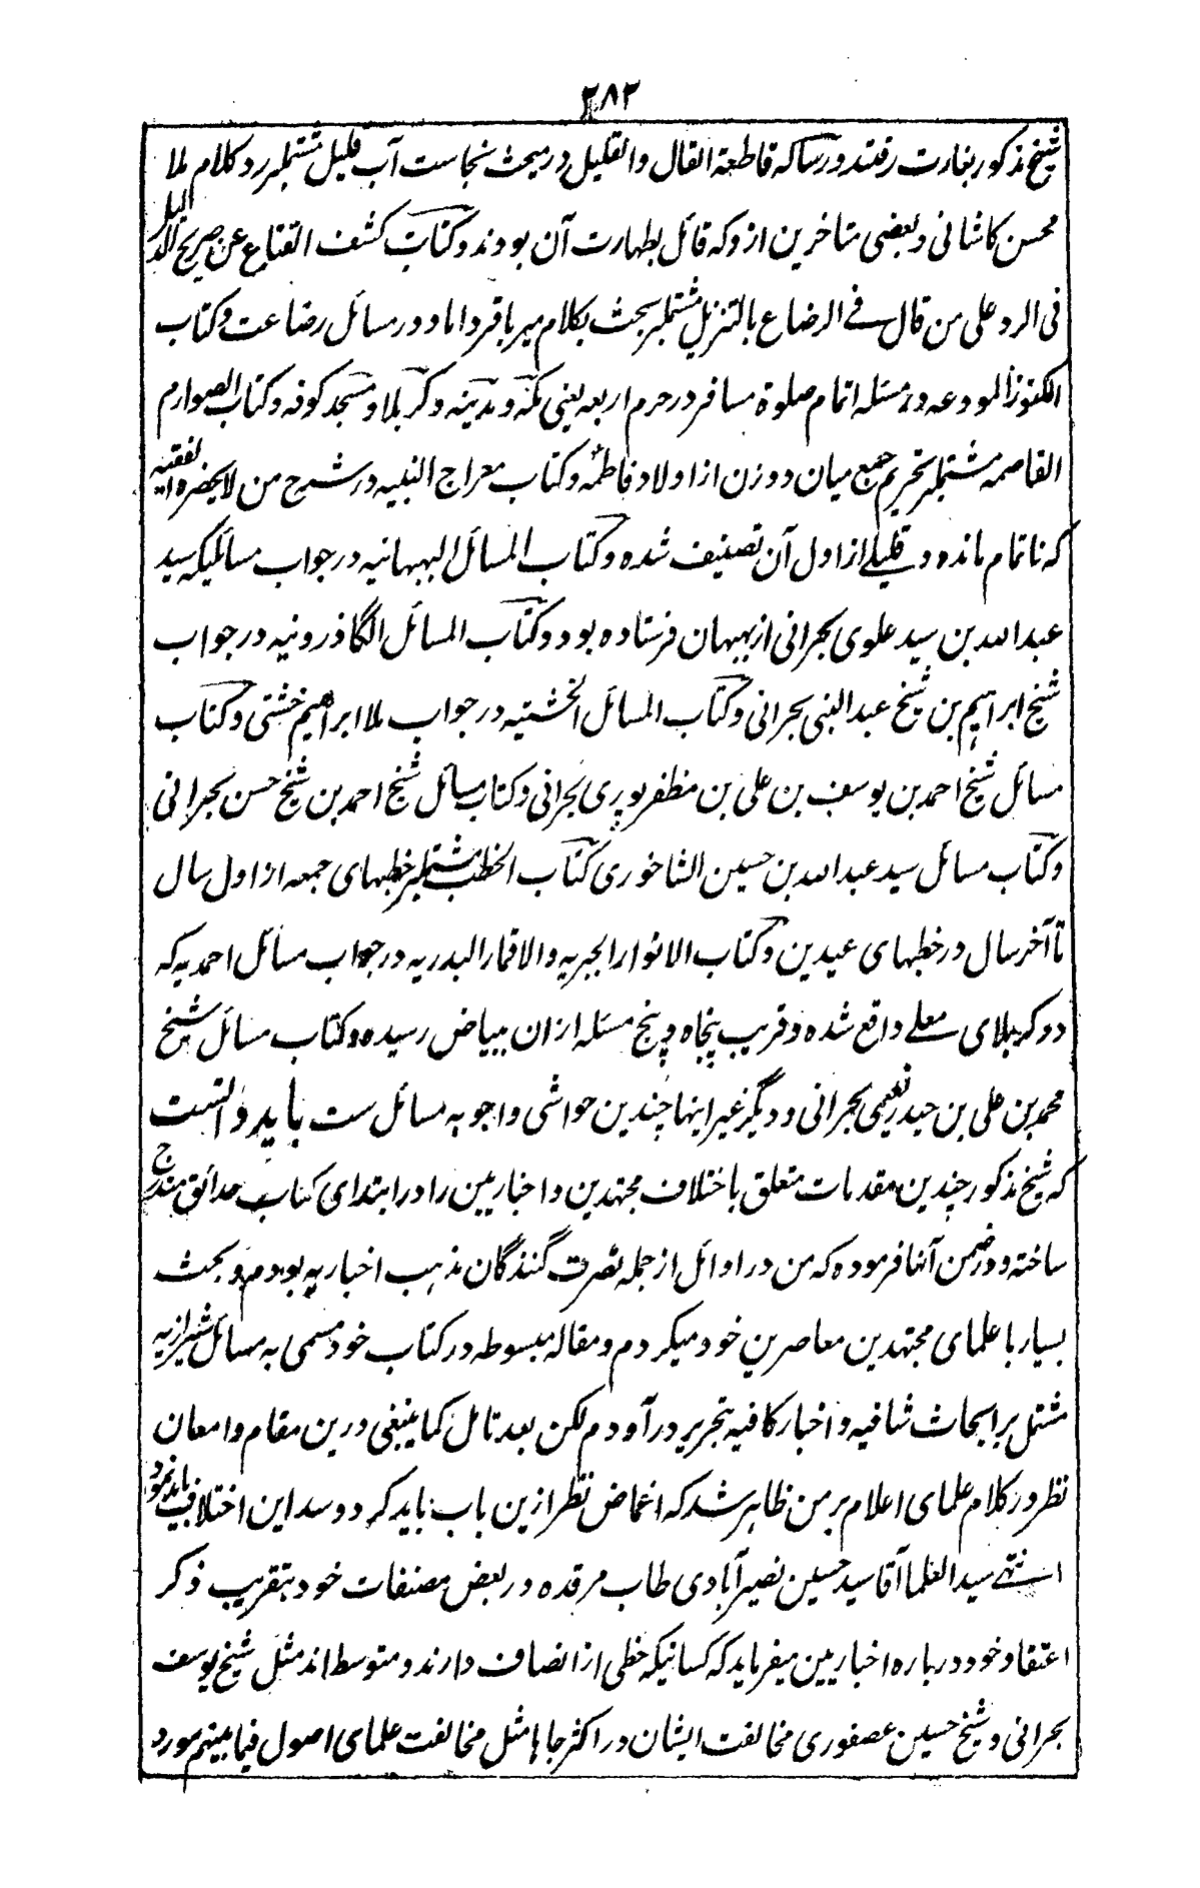 ٢٨٢
شیخ مذکور بغارت رفتند و رساله قاطعة القال والقلیل در مبحث نجاست آب قلیل مشتمل بر رد کلام ملا
محسن کاشانی و بعضی متاخرین از و که قائل بطهارت آن بودند و کتاب کشف القناع عن صریح الدلیل
فی الرد علی من قال فے الرضاع بالتنزیل مشتمل بر بحث بکلام میر باقر داماد در مسائل رضاعت و کتاب
الکنوز المودعه در مسئله اتمام صلوة مسافر در حرم اربعه یعنی مکه و مدینه و کربلا و مسجد کوفه و کتاب الصوارم
القاصمه مشتمل بر تحریم جمع میان دو زن از اولاد فاطمه و کتاب معراج النبیه در شرح من لایحضره الفقیه
که ناتمام مانده و قلیلے از اول آن تصنیف شده و کتاب المسائل البهبهانیه در جواب مسائلیکه سید
عبدالله بن سید علوی بحرانی از بهبهان فرستاده بود و کتاب المسائل الکاذرونیه در جواب
شیخ ابراهیم بن شیخ عبدالنبی بحرانی و کتاب المسائل الخشتیه در جواب ملا ابراهیم خشتی و کتاب
مسائل شیخ احمد بن یوسف بن علی بن مظفر بحرانی و کتاب مسائل شیخ احمد بن شیخ حسن بحرانی
و کتاب مسائل سید عبدالله بن حسین الشاخوری کتاب الخطب مشتمل بر خطبهای جمعه از اول سال
تا آخر سال در خطبهای عیدین و کتاب الانوار الحیریه والاقمار البدریه در جواب مسائل احمدیه که
دو کربلای معلے واقع شده و قریب پنجاه و پنج مسئله ازان ببیاض رسیده و کتاب مسائل شیخ
محمد بن علی بن حیدر نعیمی بحرانی و دیگر غیر اینها چندین حواشی و اجوبه مسائل ست باید دانست
که شیخ مذکور چندین مقدمات متعلق باختلاف مجتهدین و اخباریین را در ابتدای کتاب حدائق مندرج
ساخته و در ضمن آنها فرموده که من در اوائل از جمله نصرت کنندگان مذهب اخباریه بودم و بحث
بسیار با علمای مجتهدین معاصرین خود میکردم و مقاله مبسوطه در کتاب خود مسمی به مسائل شیرازیه
مشتمل بر ابحاث شافیه و اخبار کافیه بتحریر در آودم لکن بعد تامل کما ینبغی درین مقام و امعان
نظر در کلام علمای اعلام بر من ظاهر شد که اغماض نظر ازین باب باید کرد و سد این اختلاف باید نمود
انتهے سید العلما آقا سید حسین نصیرآبادی طاب مرقده در بعض مصنفات خود بتقریب ذکر
اعتقاد خود درباره اخباریین میفرماید که کسانیکه حظی از انصاف دارند و متوسط اند مثل شیخ یوسف
بحرانی و شیخ حسین عصفوری مخالفت ایشان در اکثر جاها مثل مخالفت علمای اصول فیما بینهم مورد